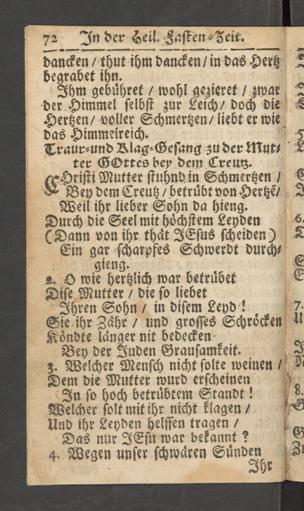 72 In der Heil. Fasten-Zeit.
dancken / thut ihm dancken / in das Hertz
begrabet ihn.
Ihm gebühret / wohl gezieret / zwar
der Himmel selbst zur Leich / doch die
Hertzen / voller Schmertzen / liebt er wie
das Himmelreich.
Traur-und Klag-Gesang zu der Mut-
ter GOttes bey dem Creutz.
CHristi Mutter stuhnd in Schmertzen /
Bey dem Creutz / betrübt von Hertzē /
Weil ihr lieber Sohn da hieng.
Durch die Seel mit höchstem Leyden
(Dann von ihr thät JEsus scheiden)
Ein gar scharpfes Schwerdt durch-
gieng.
2. O wie hertzlich war betrübet
Dise Mutter / die so liebet
Ihren Sohn / in disem Leyd!
Sie ihr Zähr / und grosses Schröcken
Köndte länger nit bedecken
Bey der Juden Grausamkeit.
3. Welcher Mensch nicht solte weinen /
Dem die Mutter wurd erscheinen
In so hoch betrübtem Standt!
Welcher solt mit ihr nicht klagen /
Und ihr Leyden helffen tragen /
Das nur JEsu war bekannt?
4. Wegen unser schwären Sünden
Ihr